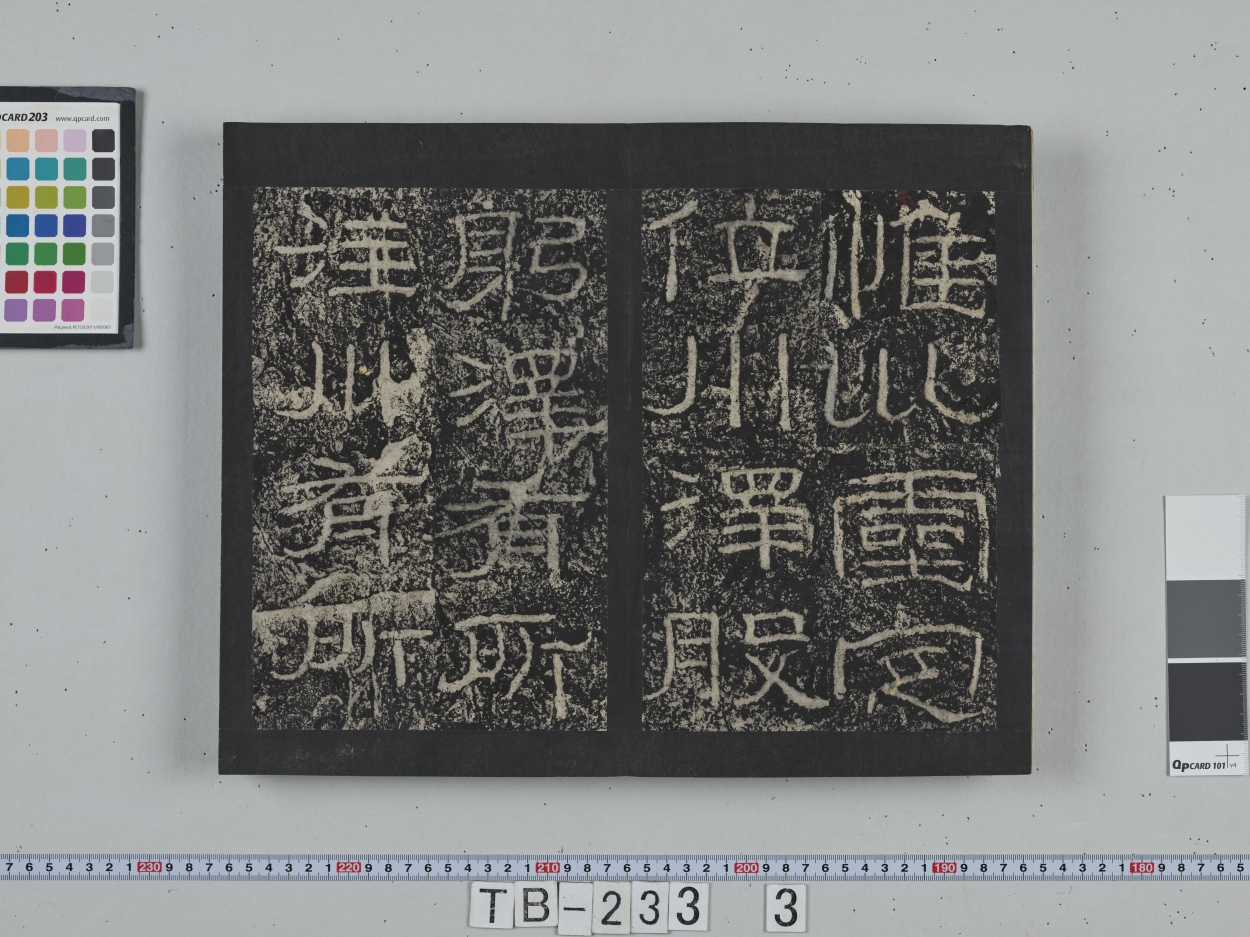 惟巛靈定
位川澤股
躬澤有所
注川有所
PCARD 203 www.qpcard.com
QPCARD 101 v4
7 6 5 4 3 2 1 230 9 8 7 6 5 4 3 2 1 220 9 8 7 6 5 4 3 2 1 210 9 8 7 6 5 4 3 2 1 200 9 8 7 6 5 4 3 2 1 190 9 8 7 6 5 4 3 2 1 180 9 8 7 6 5
TB-233 3